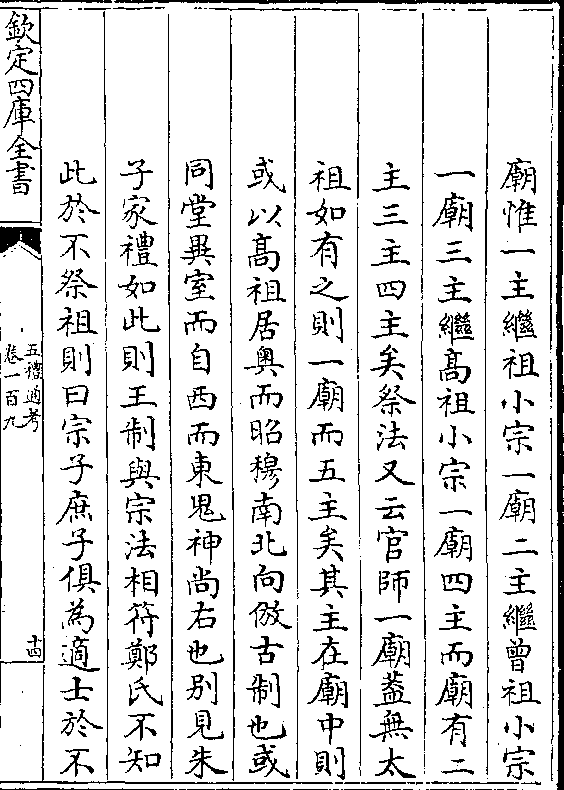 廟惟一主繼祖小宗一廟二主繼曾祖小宗
一廟三主繼髙祖小宗一廟四主而廟有二
主三主四主矣祭法又云官師一廟葢無太
祖如有之則一廟而五主矣其主在廟中則
或以髙祖居奥而昭穆南北向倣古制也或
同堂異室而自西而東鬼神尚右也别見朱
子家禮如此則王制與宗法相符鄭氏不知
此於不祭祖則曰宗子庶子俱為適士於不
欽定四庫全書
五禮通考
卷一百九
十四